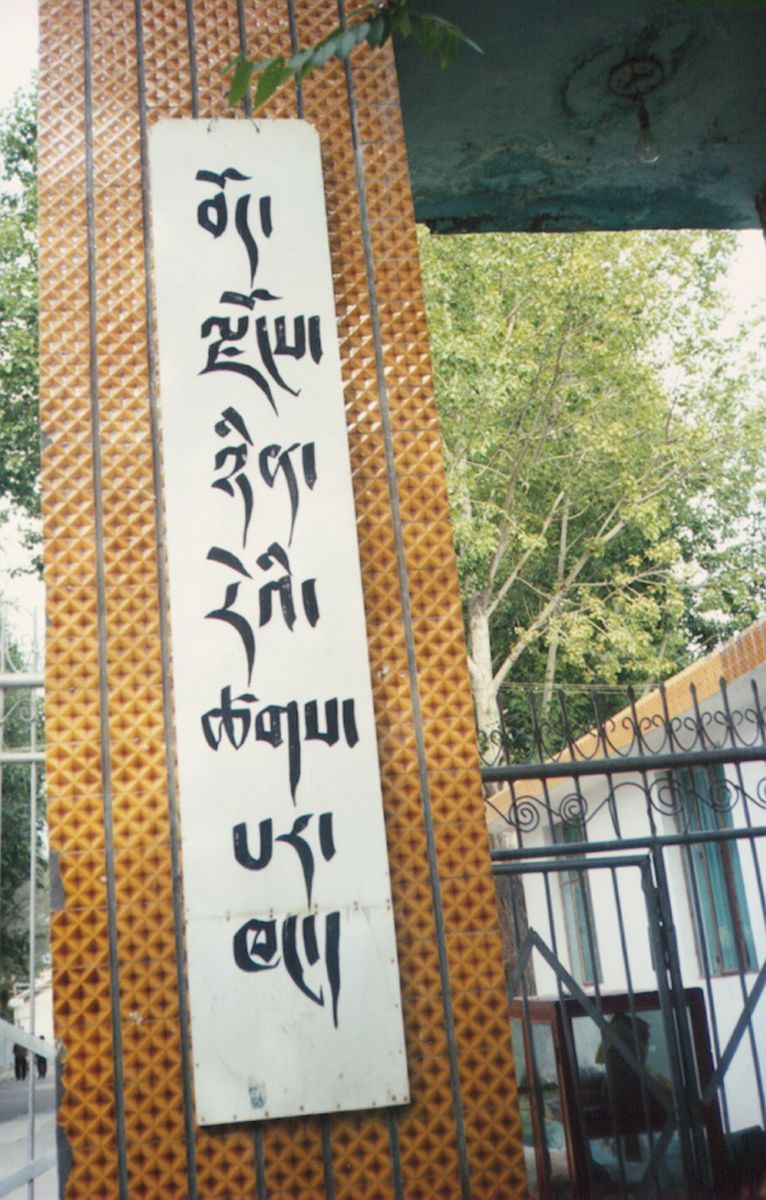 བོད་
ལྗོངས་
ཉིན་
རེའི་
ཚགས་
པར་
ཁང་